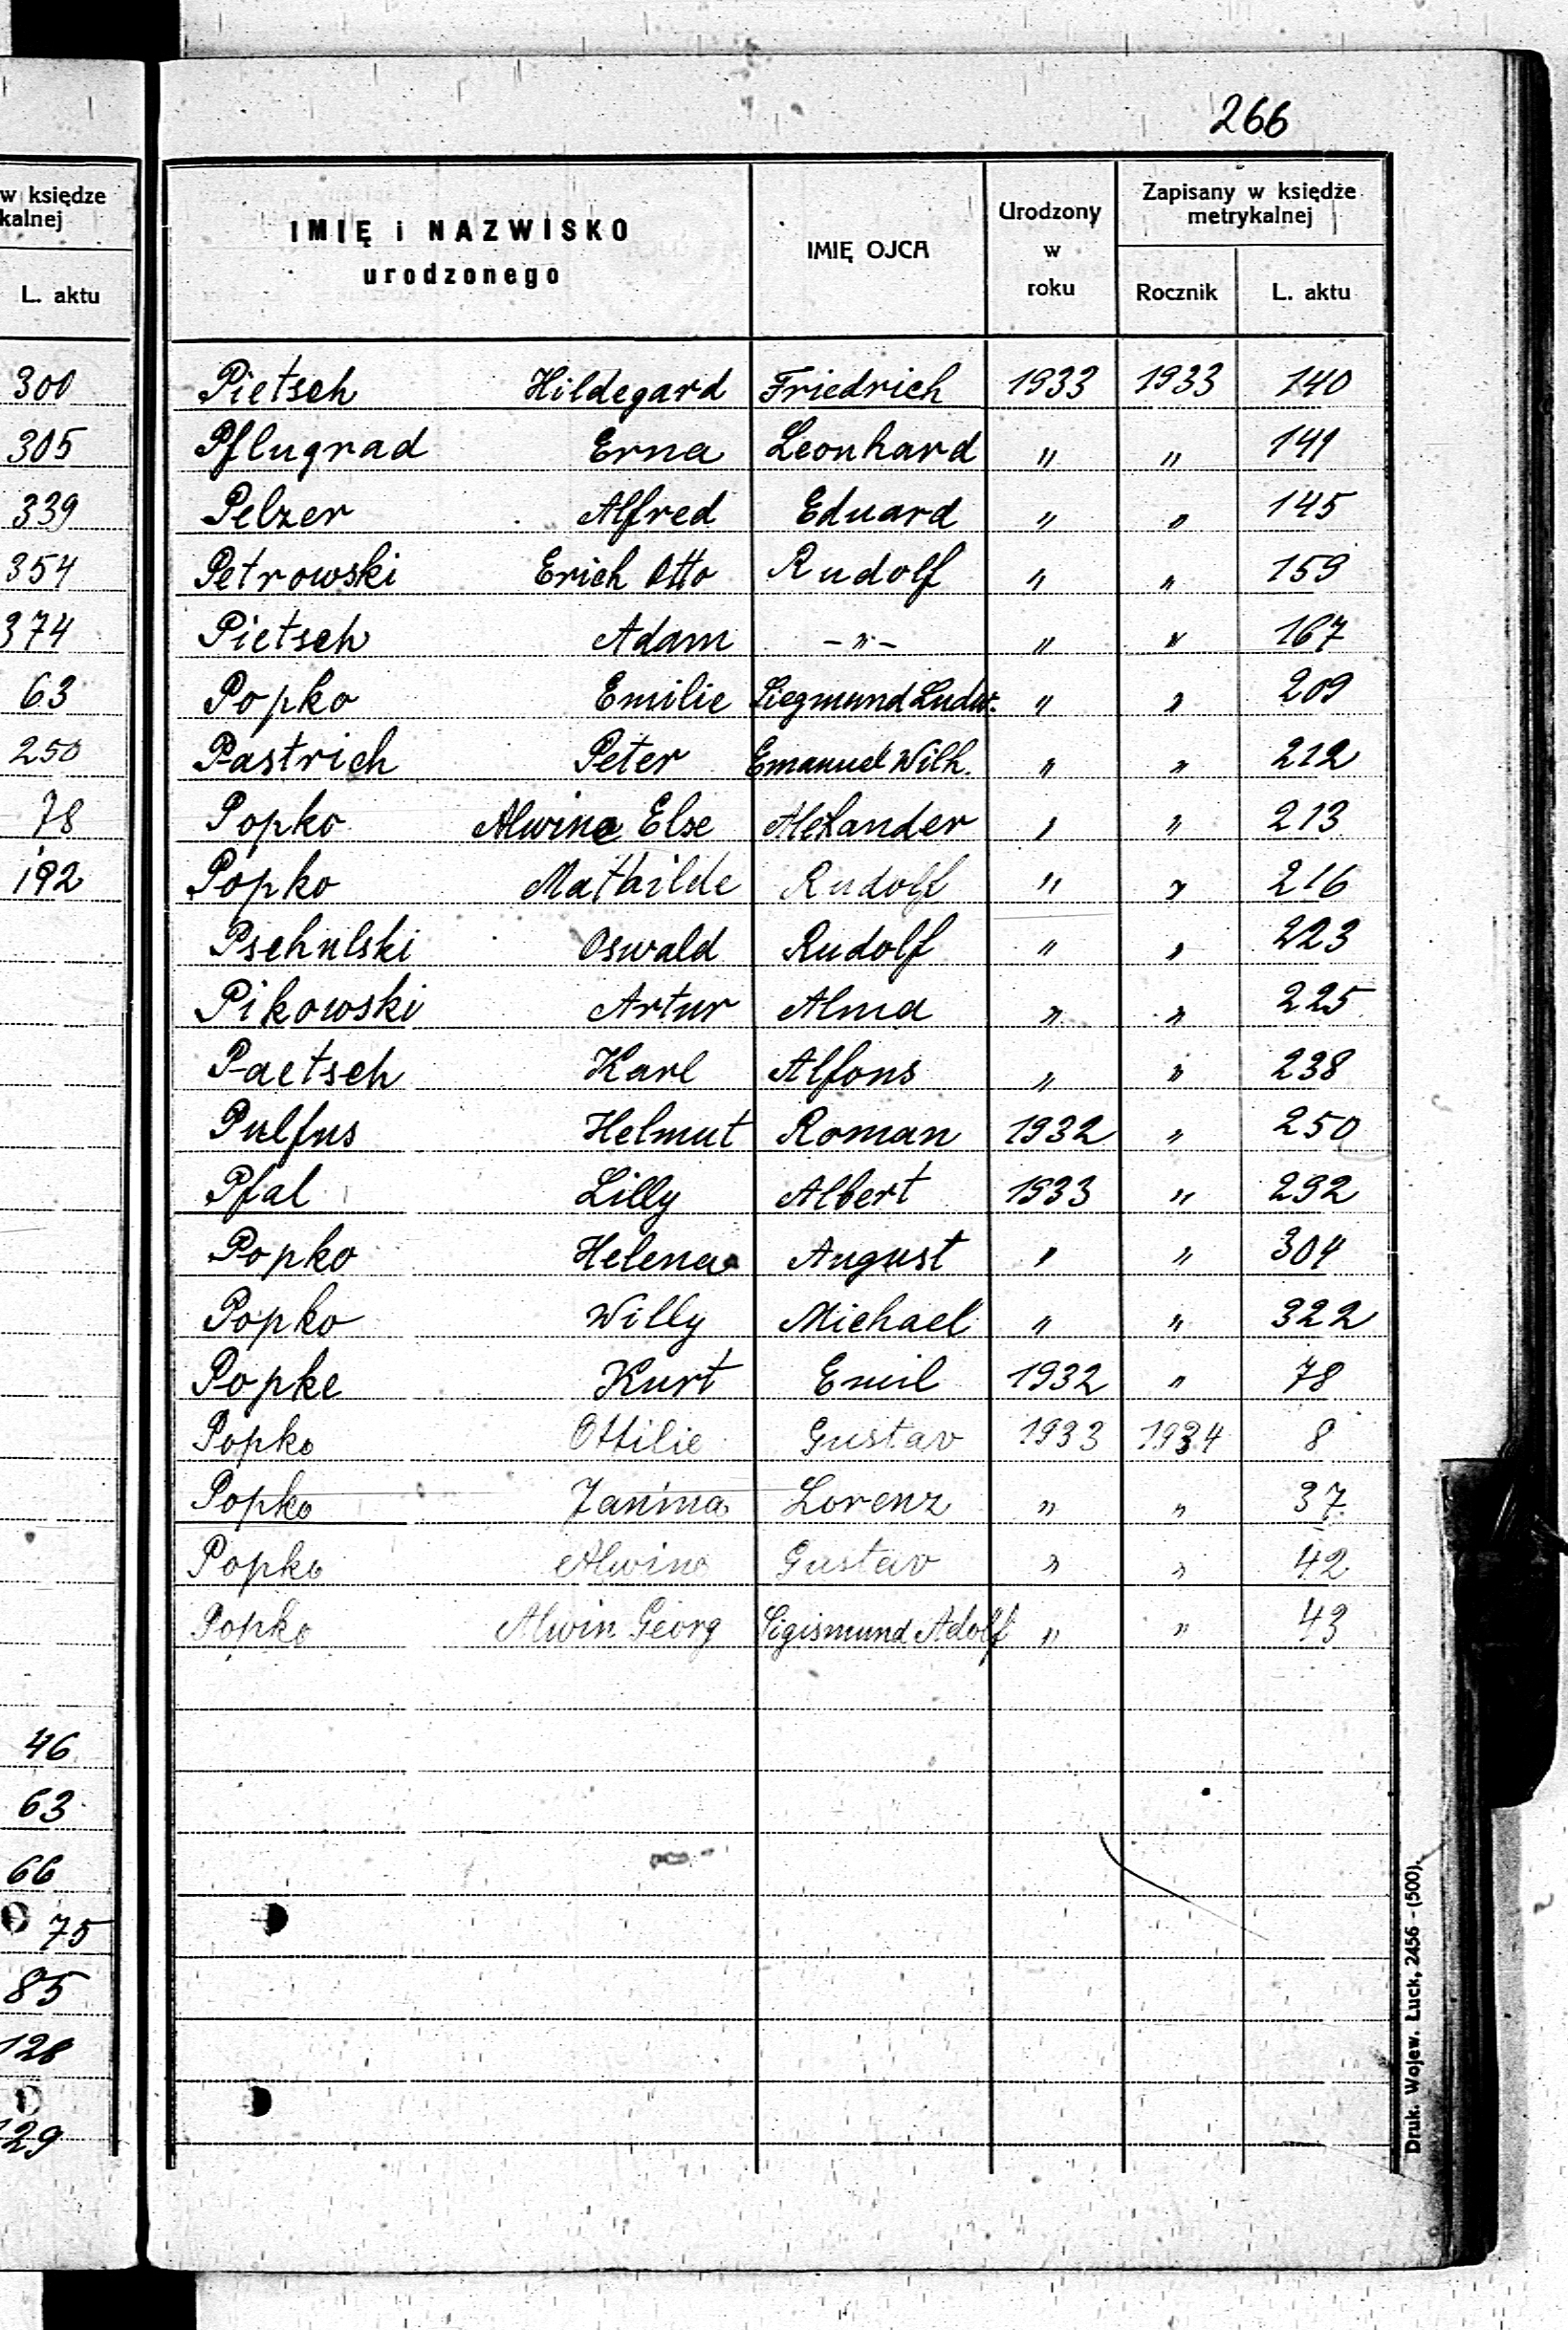 266
w księdze
kalnej
L. aktu
300
305
339
354
374
63
250
78
192
46
63
66
75
85
128
129
IMIĘ i NAZWISKO
urodzonego
IMIĘ OJCA
Urodzony
w
roku
Zapisany w księdze
metrykalnej
Rocznik
L. aktu
Pietsch Hildegard Friedrich 1933 1933 140
Pflugrad Erna Leonhard " " 141
Pelzer Alfred Eduard " " 145
Petrowski Erich Otto Rudolf " " 159
Pietsch Adam -"- " " 167
Popko Emilie Siegmund Ludw. " " 209
Pastrich Peter Emanuel Wilh. " " 212
Popko Alwine Else Alexander " " 213
Popko Mathilde Rudolf " " 216
Pschulski Oswald Rudolf " " 223
Pikowski Artur Alma " " 225
Paetsch Karl Alfons " " 238
Pulfus Helmut Roman 1932 " 250
Pfal Lilly Albert 1933 " 292
Popko Helena August " " 304
Popko Willy Michael " " 322
Popke Kurt Emil 1932 " 78
Popko Ottilie Gustav 1933 1934 8
Popko Janina Lorenz " " 37
Popko Alwine Gustav " " 42
Popko Alwin Georg Sigismund Adolf " " 43
Druk. Wojew. Łuck, 2456 - (500).